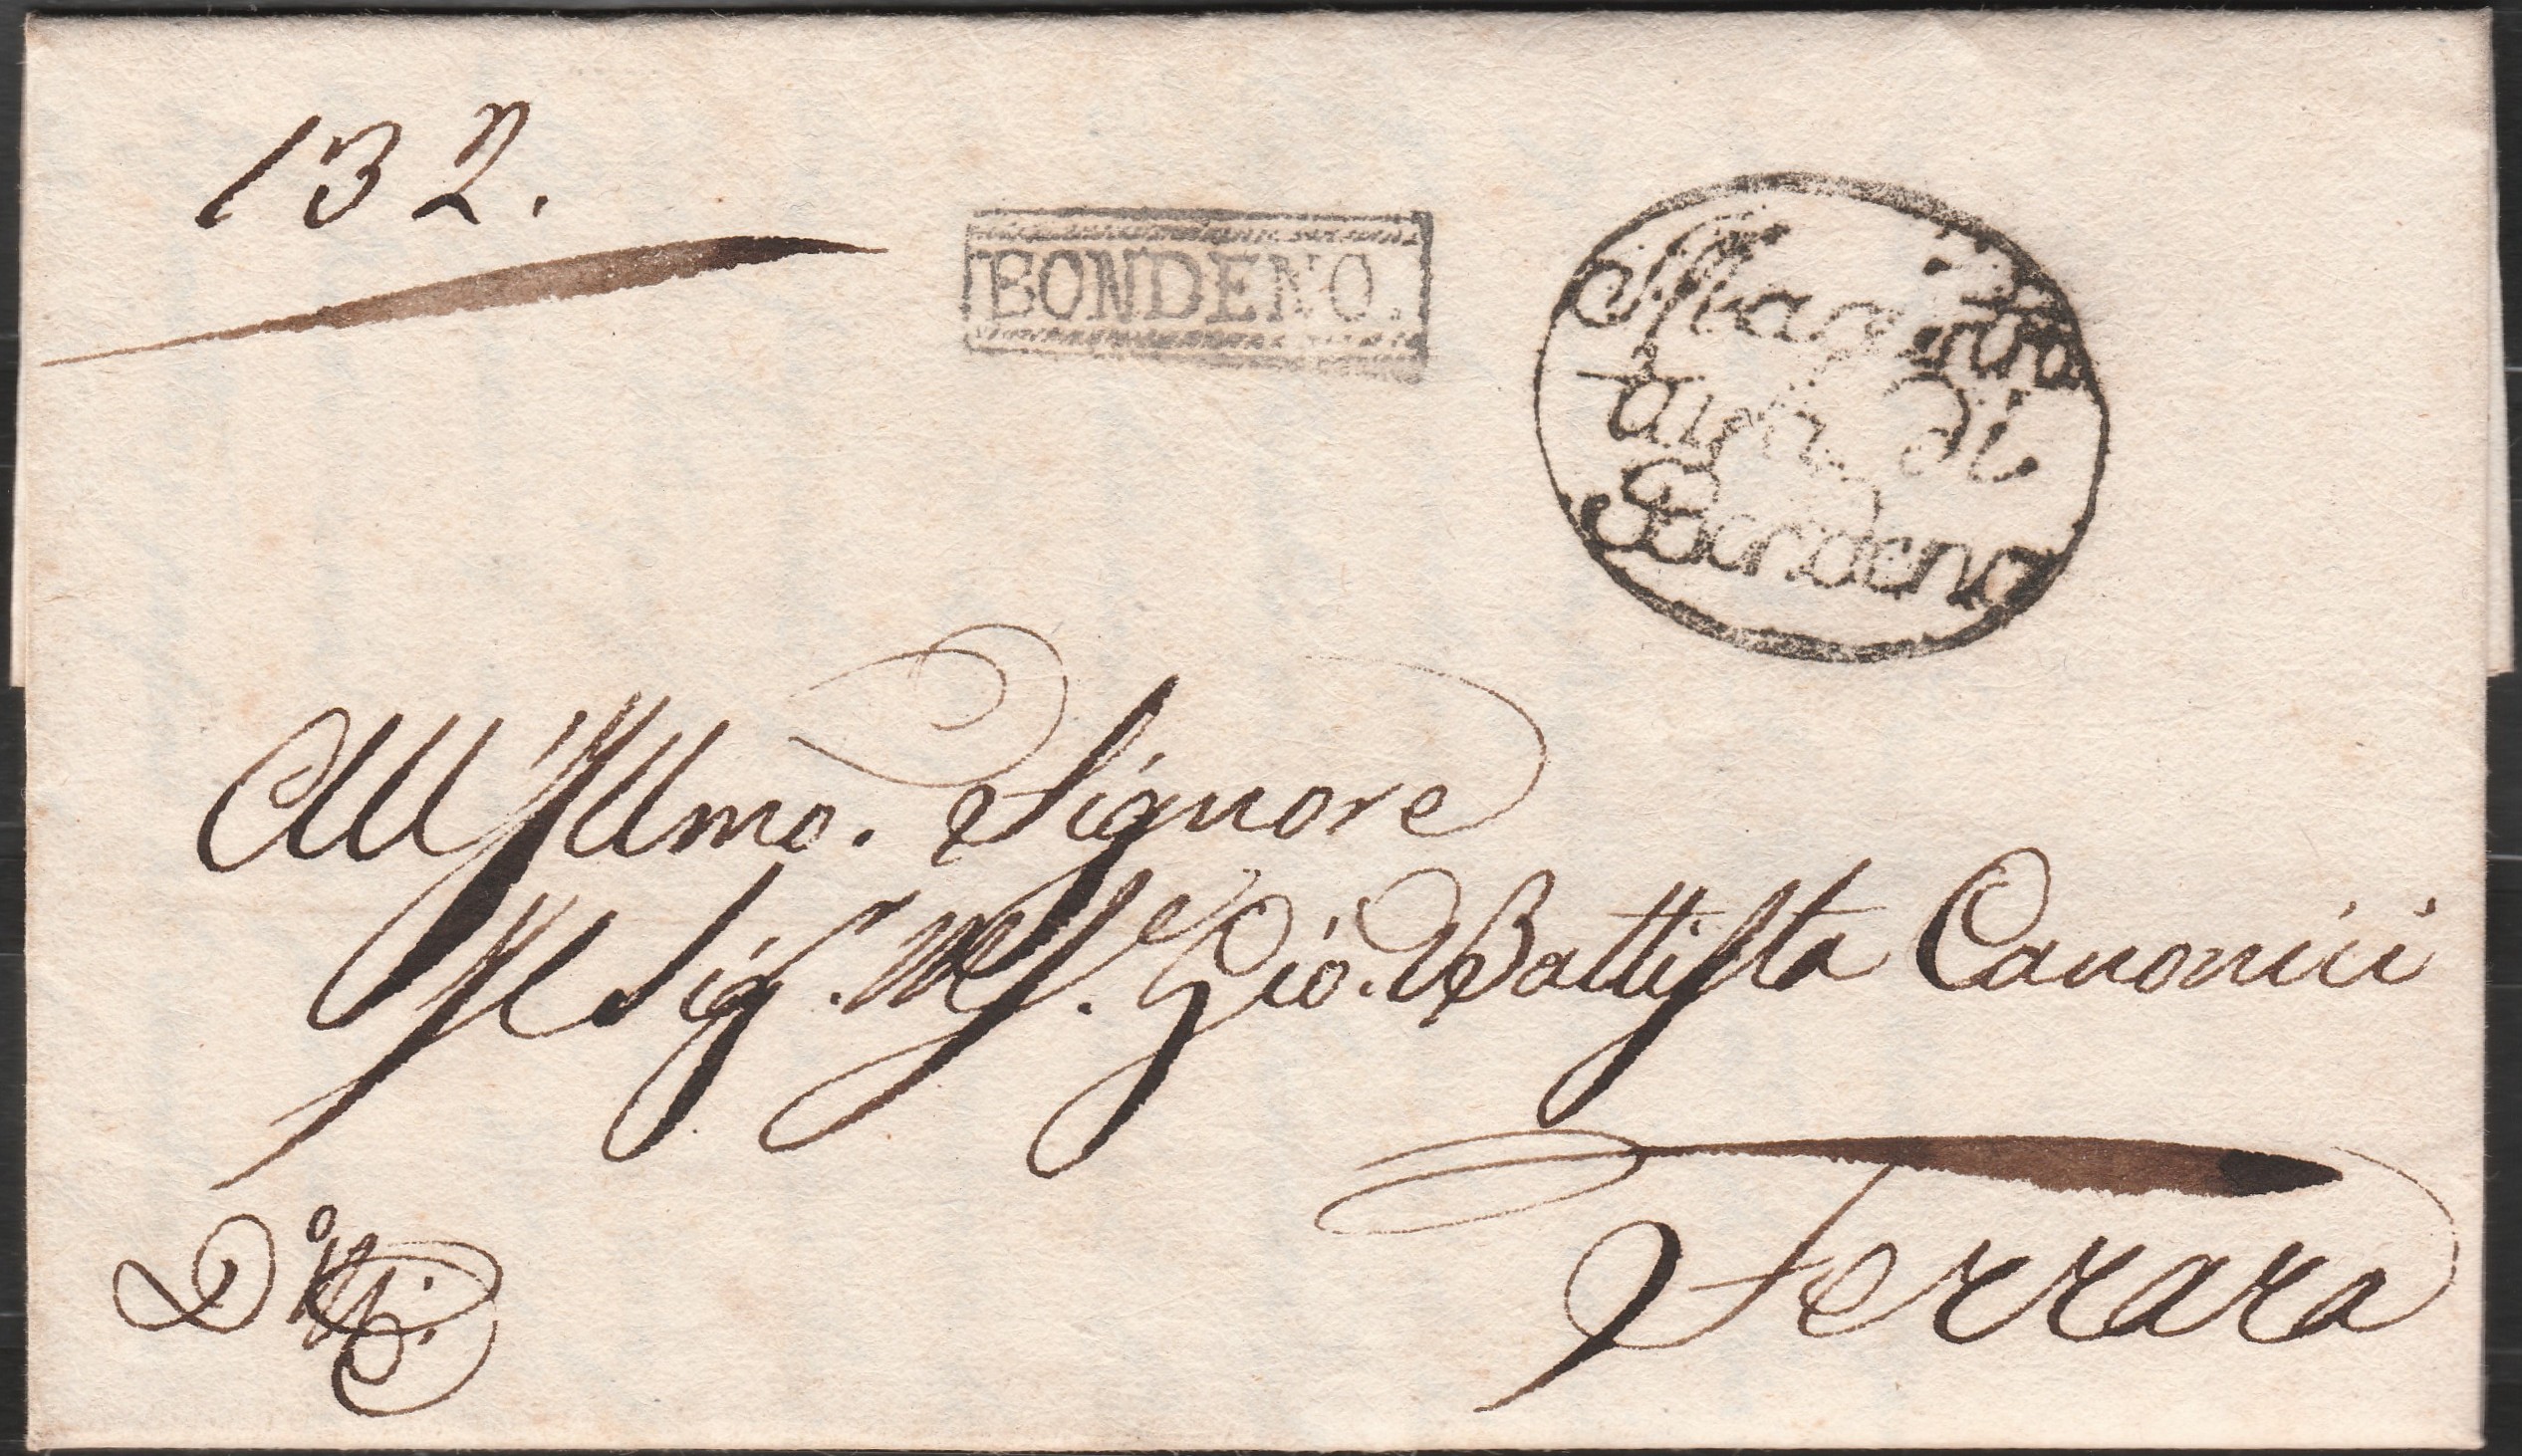 132.
BONDENO.
Magistra
tura di
Bondeno
All'Illmo. Signore
Il Sig.r Gio. Battista Canonici
Ferrara